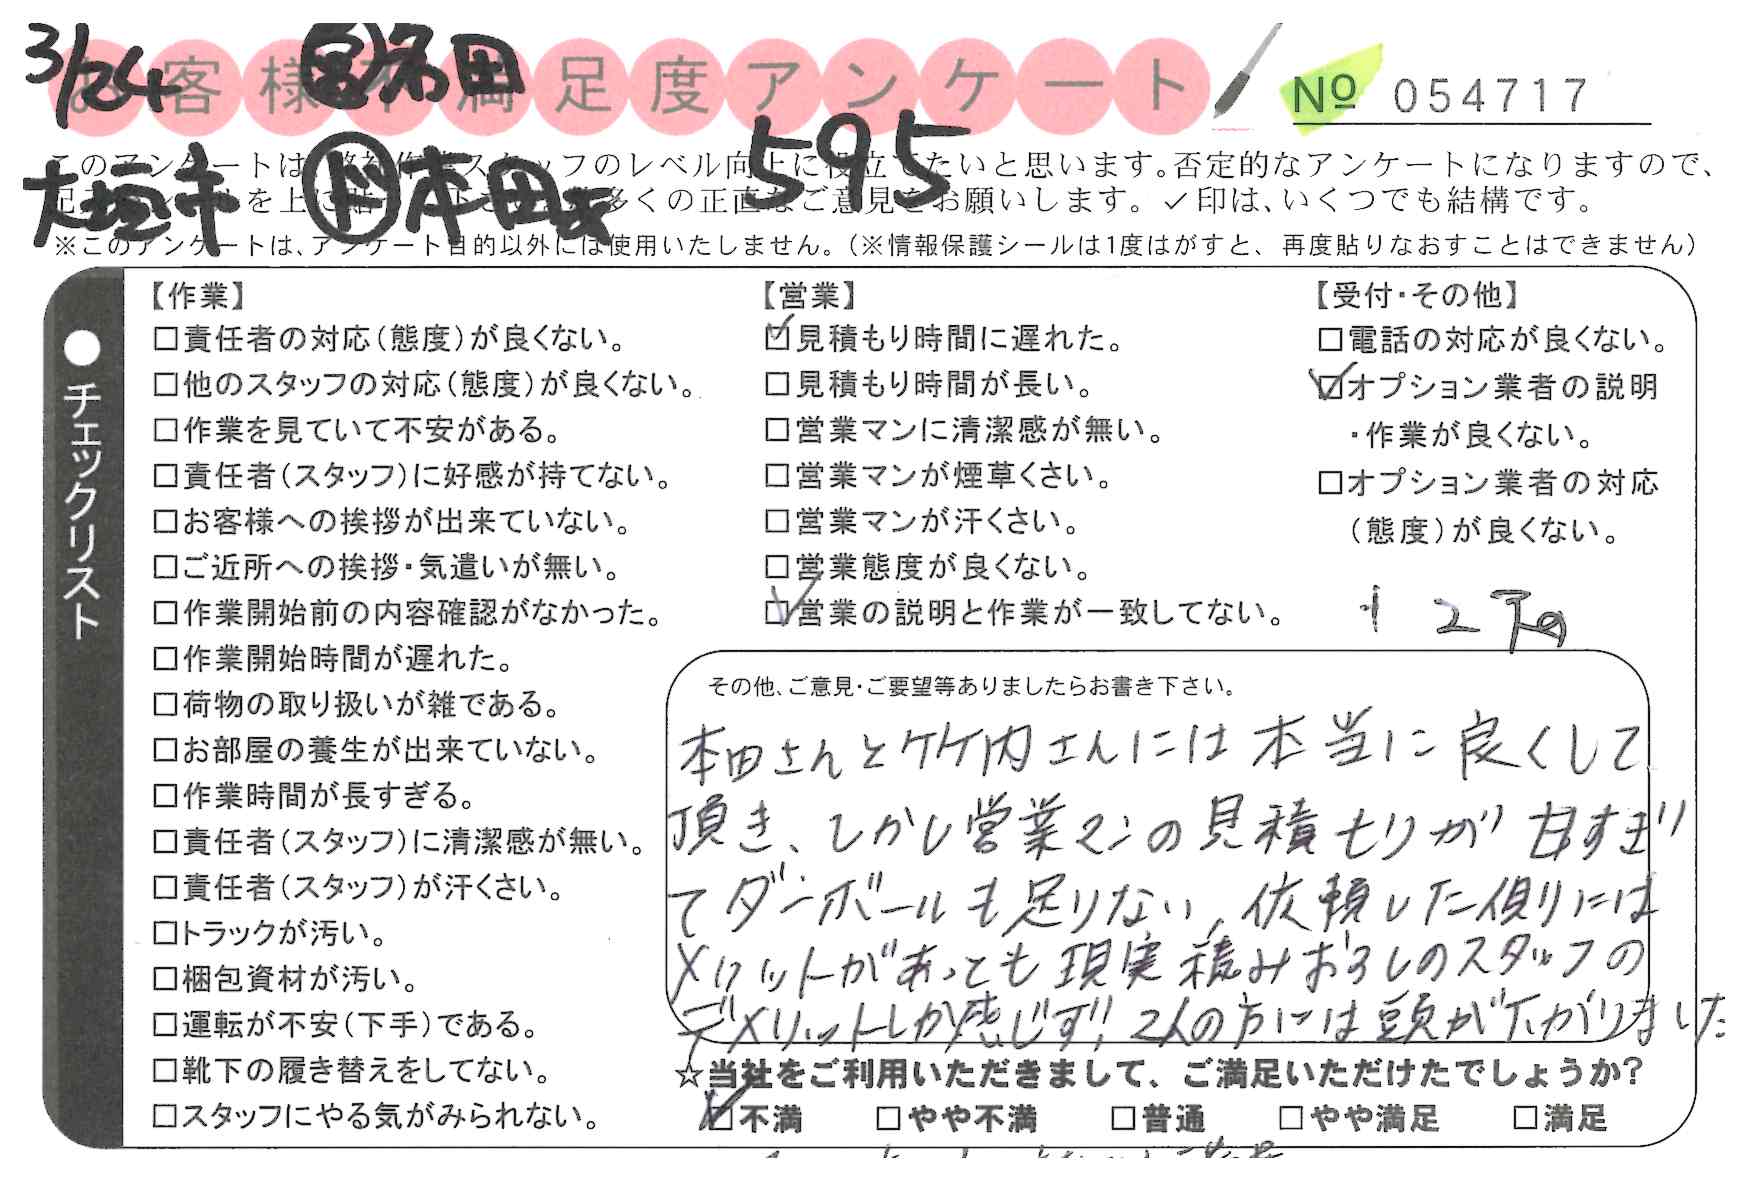 3/24
お客様不満足度アンケート
Nº 054717
595
大垣市 ド 本田
このアンケートは、スタッフのレベル向上に役立てたいと思います。否定的なアンケートになりますので、
を上に多くの正直なご意見をお願いします。✓印は、いくつでも結構です。
※このアンケートは、アンケート目的以外には使用いたしません。（※情報保護シールは1度はがすと、再度貼りなおすことはできません）
●チェックリスト
【作業】
□責任者の対応（態度）が良くない。
□他のスタッフの対応（態度）が良くない。
□作業を見ていて不安がある。
□責任者（スタッフ）に好感が持てない。
□お客様への挨拶が出来ていない。
□ご近所への挨拶・気遣いが無い。
□作業開始前の内容確認がなかった。
□作業開始時間が遅れた。
□荷物の取り扱いが雑である。
□お部屋の養生が出来ていない。
□作業時間が長すぎる。
□責任者（スタッフ）に清潔感が無い。
□責任者（スタッフ）が汗くさい。
□トラックが汚い。
□梱包資材が汚い。
□運転が不安（下手）である。
□靴下の履き替えをしてない。
□スタッフにやる気がみられない。
【営業】
☑見積もり時間に遅れた。
□見積もり時間が長い。
□営業マンに清潔感が無い。
□営業マンが煙草くさい。
□営業マンが汗くさい。
□営業態度が良くない。
☑営業の説明と作業が一致してない。
【受付・その他】
□電話の対応が良くない。
☑オプション業者の説明
・作業が良くない。
□オプション業者の対応
（態度）が良くない。
その他、ご意見・ご要望等ありましたらお書き下さい。
本田さんと竹内さんには本当に良くして
頂き、しかし営業マンの見積もりが甘すぎ
てダンボールも足りない、依頼した側には
メリットがあっても現実積みおろしのスタッフの
デメリットしか感じず!! 2人の方には頭が下がりました
☆当社をご利用いただきまして、ご満足いただけたでしょうか?
☑不満 □やや不満 □普通 □やや満足 □満足